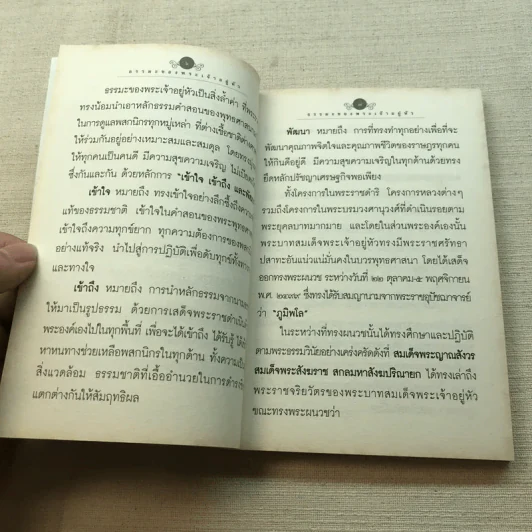 ธรรมะของพระเจ้าอยู่หัว
ธรรมะของพระเจ้าอยู่หัวเป็นสิ่งล้ำค่า ที่
ทรงน้อมนำเอาหลักธรรมคำสอนของพุทธศาสนา
ในการดูแลพสกนิกรทุกหมู่เหล่า ที่ต่างเชื้อชาติ
ให้ร่วมกันอยู่อย่างเหมาะสมและสมดุล โดยทรง
ให้ทุกคนเป็นคนดี มีความสุขความเจริญ ไม่
ซึ่งกันและกัน ด้วยหลักการ "เข้าใจ เข้าถึง และ
เข้าใจ หมายถึง ทรงเข้าใจอย่างลึกซึ้งถึงความ
แท้ของธรรมชาติ เข้าใจในคำสอนของพระพุทธ
เข้าใจถึงความทุกข์ยาก ทุกความต้องการของ
อย่างแท้จริง นำไปสู่การปฏิบัติเพื่อดับทุกข์ทั้งทาง
และทางใจ
เข้าถึง หมายถึง การนำหลักธรรมจาก
ให้มาเป็นรูปธรรม ด้วยการเสด็จพระราชดำเนิน
พระองค์เองไปในทุกพื้นที่ เพื่อจะได้เข้าถึง ได้รับรู้
หาหนทางช่วยเหลือพสกนิกรในทุกด้าน ทั้งความเป็น
สิ่งแวดล้อม ธรรมชาติที่เอื้ออำนวยในการดำรง
แตกต่างกันให้สัมฤทธิผล
ธรรมะของพระเจ้าอยู่หัว
พัฒนา หมายถึง การที่ทรงทำทุกอย่างเพื่อที่จะ
พัฒนาคุณภาพจิตใจและคุณภาพชีวิตของราษฎรทุกคน
ให้กินดีอยู่ดี มีความสุขความเจริญในทุกด้านด้วยทรง
ยึดหลักปรัชญาเศรษฐกิจพอเพียง
ทั้งโครงการในพระราชดำริ โครงการหลวงต่างๆ
รวมถึงโครงการในพระบรมวงศานุวงศ์ที่ดำเนินรอยตาม
พระยุคลบาทมากมาย และโดยในส่วนพระองค์เองนั้น
พระบาทสมเด็จพระเจ้าอยู่หัวทรงมีพระราชศรัทธา
ปสาทะอันแน่วแน่มั่นคงในบวรพุทธศาสนา โดยได้เสด็จ
ออกทรงพระผนวช ระหว่างวันที่ ๒๒ ตุลาคม-๕ พฤศจิกายน
พ.ศ. ๒๔๙๙ ซึ่งทรงได้รับสมญานามจากพระราชอุปัชฌาจารย์
ว่า "ภูมิพโล"
ในระหว่างที่ทรงผนวชนั้นได้ทรงศึกษาและปฏิบัติ
ตามพระธรรมวินัยอย่างเคร่งครัดดังที่ สมเด็จพระญาณสังวร
สมเด็จพระสังฆราช สกลมหาสังฆปริณายก ได้ทรงเล่าถึง
พระราชจริยวัตรของพระบาทสมเด็จพระเจ้าอยู่หัว
ขณะทรงพระผนวชว่า